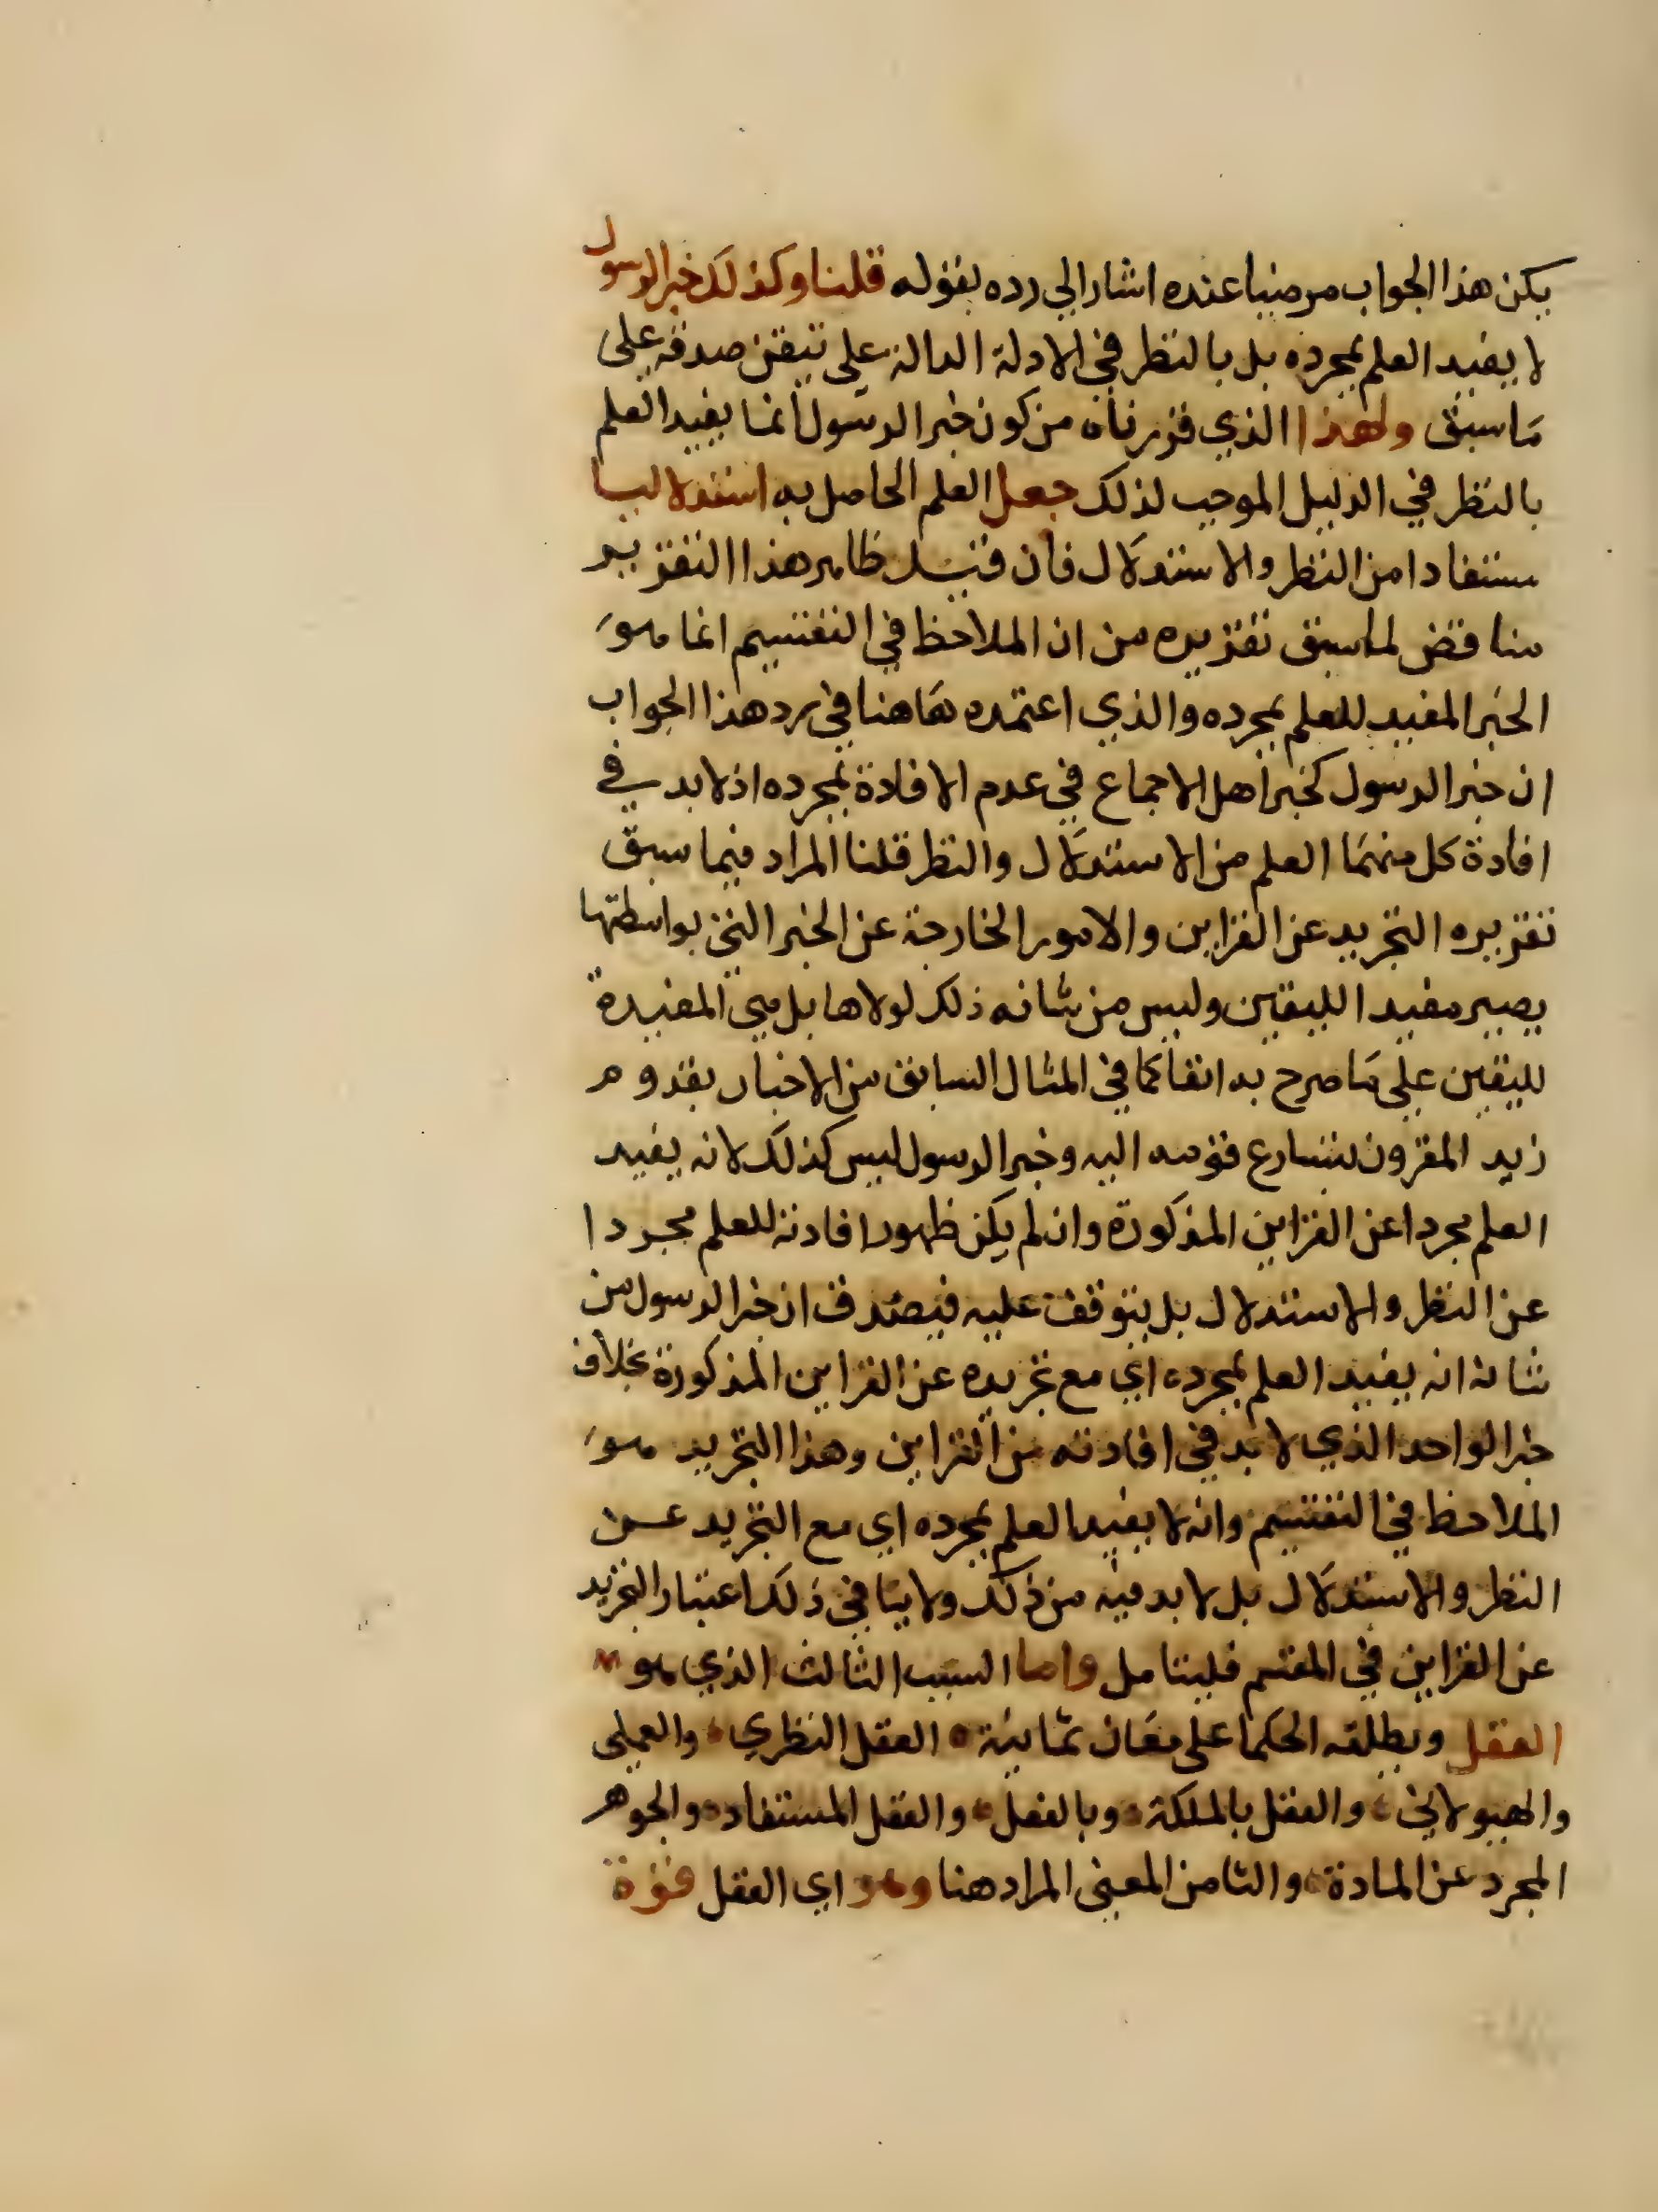 يكن هذا الجواب مرضيا عنده اشار الي رده بقوله قلنا وكذلك خبر الرسول
لا يفيد العلم بمجرده بل بالنظر في الادلة الدالة علي تيقن صدقه علي
ما سبق ولهذا الذي قررناه من كون خبر الرسول انما يفيد العلم
بالنظر في الدليل الموجب لذلك جعل العلم الحاصل به استدلاليا
مستفادا من النظر والاستدلال فان قيل ظاهر هذا التقرير
مناقض لما سبق تقريره من ان الملاحظ في التقسيم انما هو
الخبر المفيد للعلم بمجرده والذي اعتمده هاهنا في رد هذا الجواب
ان خبر الرسول كخبر اهل الاجماع في عدم الافادة بمجرده اذ لا بد في
افادة كل منهما العلم من الاستدلال والنظر قلنا المراد فيما سبق
تقريره التجريد عن القراين والامور الخارجة عن الخبر التي بواسطتها
يصير مفيدا لليقين وليس من شانه ذلك لولاها بل هي المفيدة
لليقين علي ما صرح به انفا كما في المثال السابق من الاخبار بقدوم
زيد المقرون بتسارع قومه اليه وخبر الرسول ليس كذلك لانه يفيد
العلم مجردا عن القراين المذكورة وان لم يكن ظهور افادته للعلم مجردا
عن النظر والاستدلال بل يتوقف عليه فيصدق ان خبر الرسول من
شانه انه يفيد العلم بمجرده اي مع تجريده عن القراين المذكورة بخلاف
خبر الواحد الذي لا بد في افادته من القراين وهذا التجريد هو
الملاحظ في التقسيم وانه لا يفيد العلم بمجرده اي مع التجريد عن
النظر والاستدلال بل لا بد فيه من ذلك ولا ينافي ذلك اعتبار التجريد
عن القراين في المقسم فليتامل واما السبب الثالث الذي هو
العقل ويطلقه الحكما علي معان ثمانية العقل النظري والعملي
والهيولاني والعقل بالملكة وبالفعل والعقل المستفاد والجوهر
المجرد عن المادة والثامن المعني المراد هنا وهو اي العقل قوة